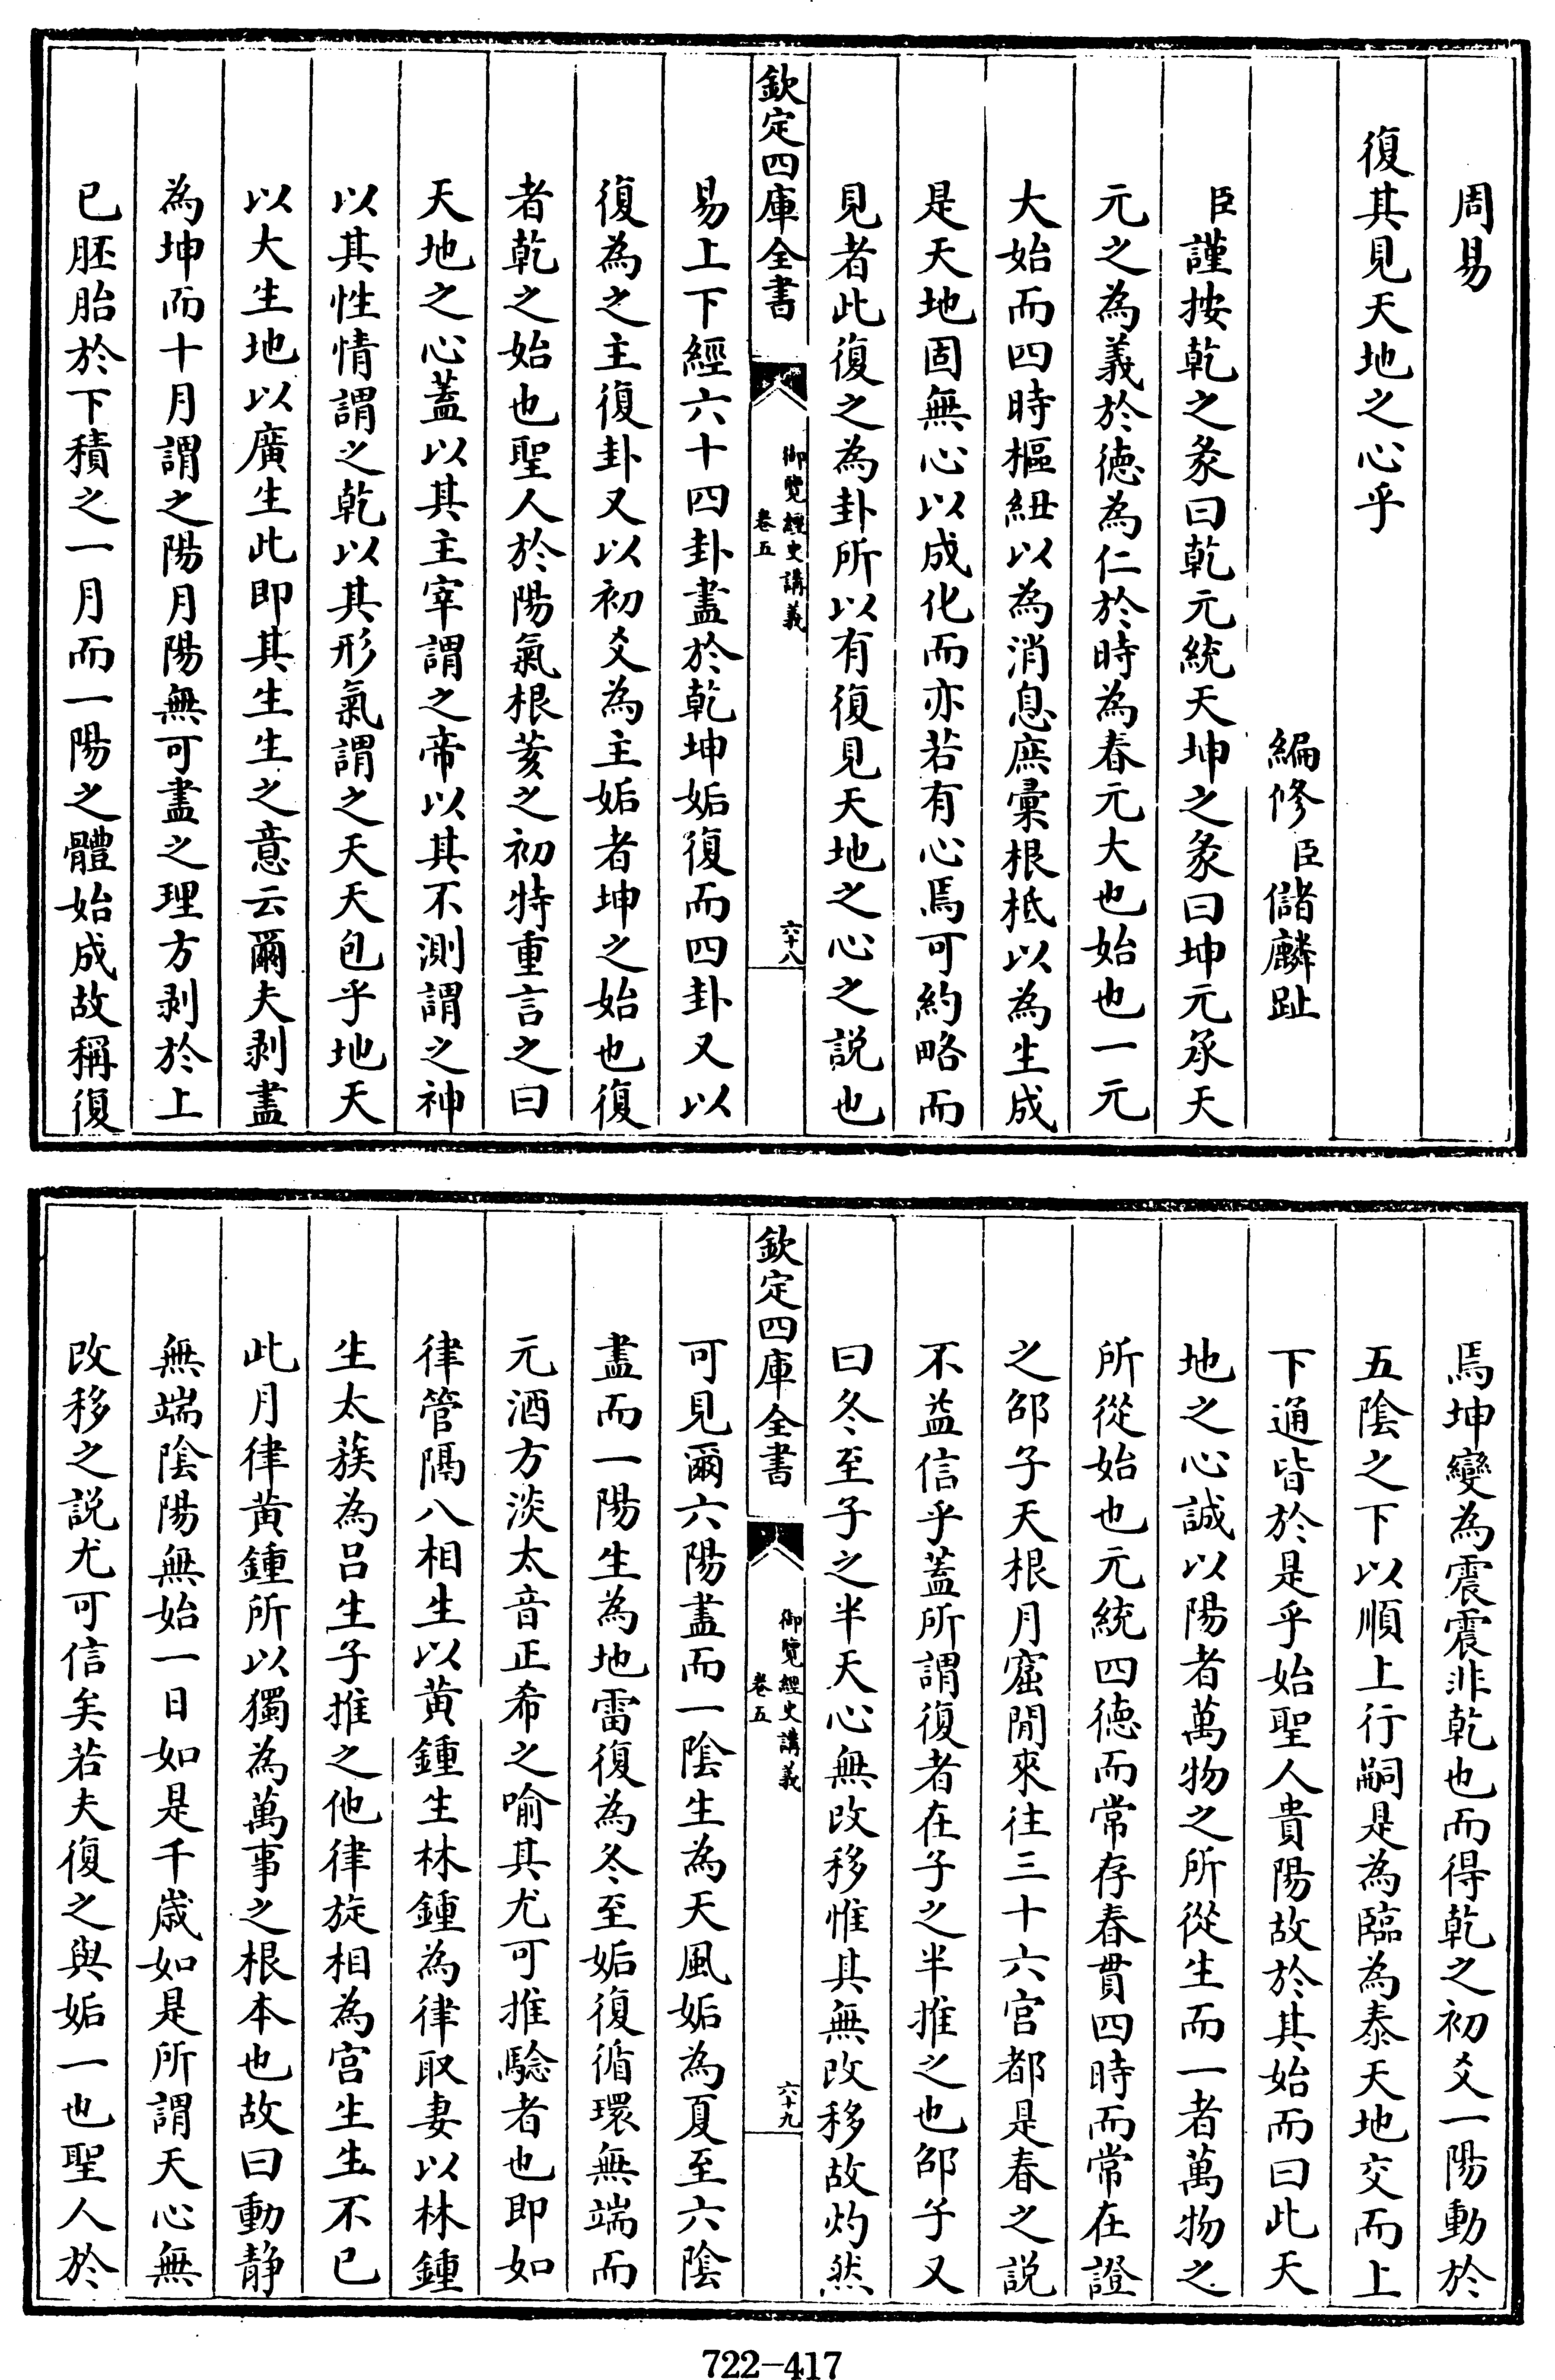 周易
復其見天地之心乎
編修臣儲麟趾
臣謹按乾之彖曰乾元統天坤之彖曰坤元承天
元之為義於德為仁於時為春元大也始也一元
大始而四時樞紐以為消息庶彚根柢以為生成
是天地固無心以成化而亦若有心焉可約略而
見者此復之為卦所以有復見天地之心之説也
欽定四庫全書
御覽經史講義
卷五
六十八
易上下經六十四卦盡於乾坤姤復而四卦又以
復為之主復卦又以初爻為主姤者坤之始也復
者乾之始也聖人於陽氣根荄之初特重言之曰
天地之心蓋以其主宰謂之帝以其不測謂之神
以其性情謂之乾以其形氣謂之天天包乎地天
以大生地以廣生此即其生生之意云爾夫剥盡
為坤而十月謂之陽月陽無可盡之理方剥於上
已胚胎於下積之一月而一陽之體始成故稱復
焉坤變為震震非乾也而得乾之初爻一陽動於
五隂之下以順上行嗣是為臨為泰天地交而上
下通皆於是乎始聖人貴陽故於其始而曰此天
地之心誠以陽者萬物之所從生而一者萬物之
所從始也元統四徳而常存春貫四時而常在證
之邵子天根月窟閒來往三十六宫都是春之説
不益信乎蓋所謂復者在子之半推之也邵子又
曰冬至子之半天心無改移惟其無改移故灼然
欽定四庫全書
御覽經史講義
卷五
六十九
可見爾六陽盡而一隂生為天風姤為夏至六隂
盡而一陽生為地雷復為冬至姤復循環無端而
元酒方淡太音正希之喻其尤可推驗者也即如
律管隔八相生以黄鍾生林鍾為律取妻以林鍾
生太蔟為呂生子推之他律旋相為宫生生不已
此月律黄鍾所以獨為萬事之根本也故曰動静
無端隂陽無始一日如是千歲如是所謂天心無
改移之説尤可信矣若夫復之與姤一也聖人於
722-417